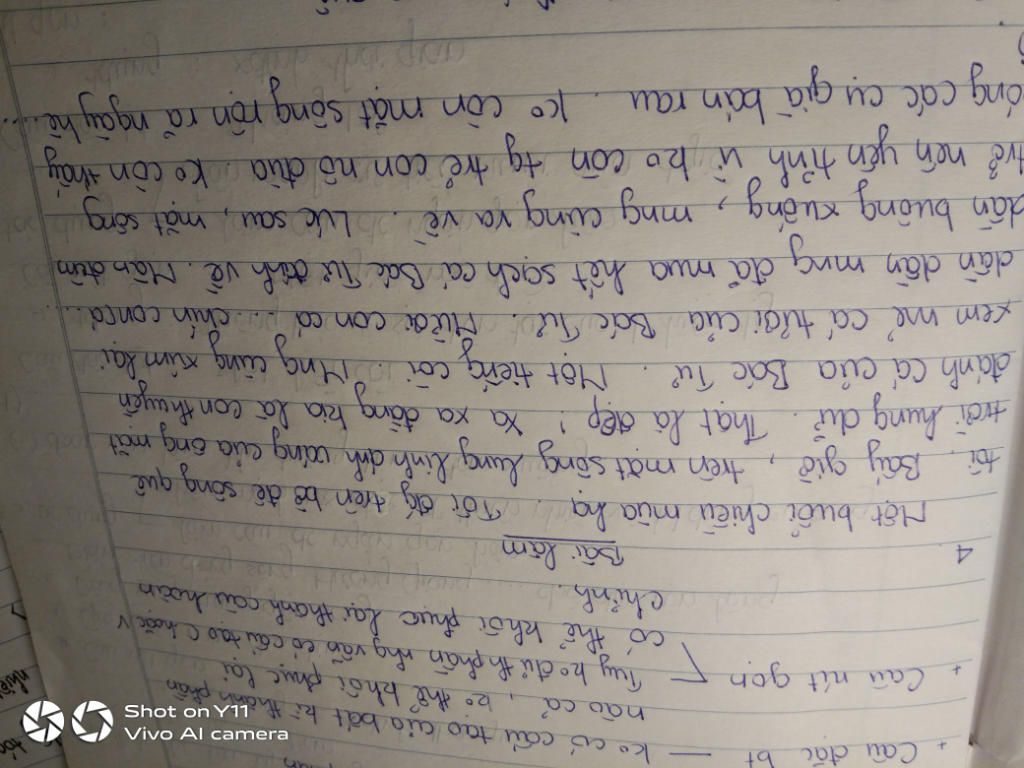 + Câu đặc bt — ko có cấu tạo của bất kì thành phần
nào cả, ko thể khôi phục lại
+ Câu rút gọn Tuy ko đủ th phần nhg vẫn có cấu tạo C hoặc V
có thể khôi phục lại thành câu hoàn
chỉnh.
4 Bài làm
Một buổi chiều mùa hạ. Tôi đg trên bờ đê sông quê
tôi. Bây giờ, trên mặt sông lung linh ánh vàng của ông mặt
trời hung dữ. Thật là đẹp! Xa xa đằng kia là con thuyền
đánh cá của Bác Tư. Một tiếng còi. Mng cùng xúm lại
xem mẻ cá tươi của Bác Tư. Mười con cá... chín con cá...
dần dần mng đã mua hết sạch cá Bác Tư đánh về. Màn đêm
dần buông xuống, mng cùng ra về. Lúc sau, mặt sông
trở nên yên tĩnh vì ko còn tg trẻ con nô đùa. Ko còn thấy
các cụ già bán rau. Ko còn mặt sông rộn rã ngày hè....
Shot on Y11
Vivo AI camera